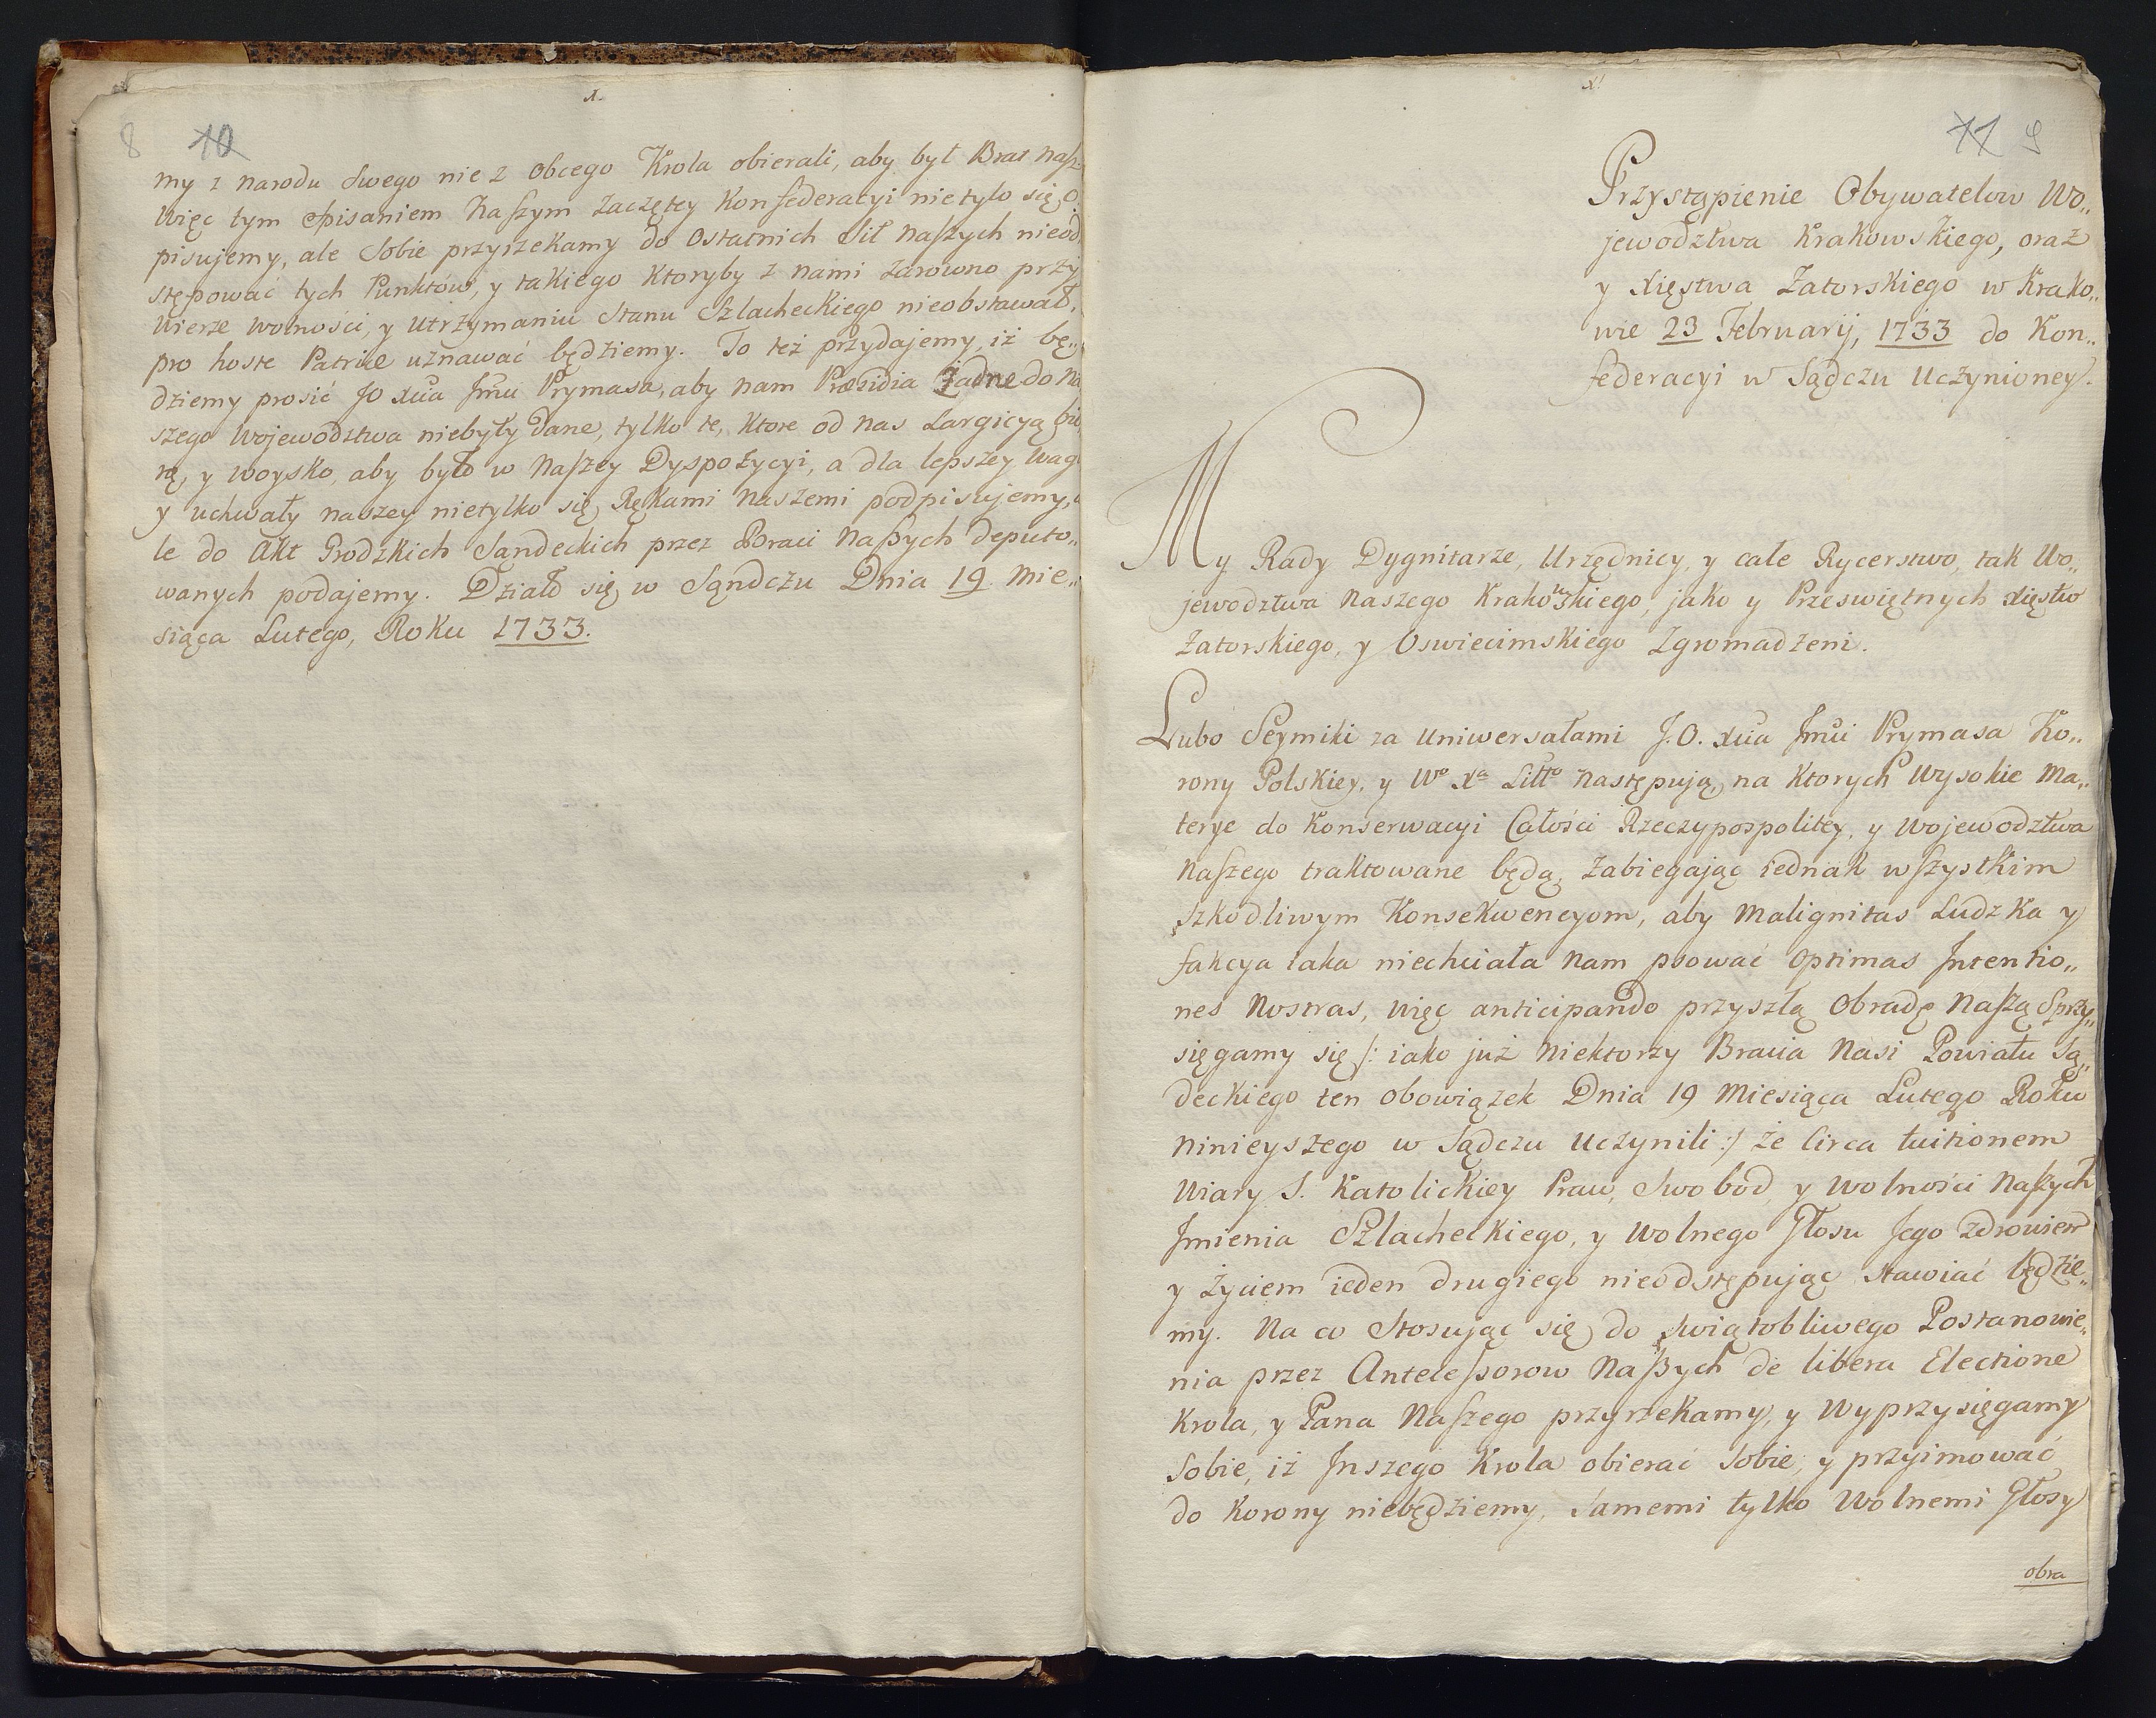 X.
8 10
my z narodu Swego nie z obcego Krola obierali, aby był Brat nasz
Więc tym spisaniem Naszym zaczętey Konfederacyi nietylo się o
pisujemy, ale Sobie przyrzekamy do Ostatnich Sił naszych nieod,
stępować tych Punktow, y takiego Ktoryby z nami zarowno przy
Wierze wolności, y utrzymaniu Stanu Szlacheckiego nieobstawał,
pro hoste Patriæ uznawać będziemy. To też przydajemy, iż bę„
dziemy prosić JO Xua Jmu Prymasa, aby nam Præsidia Żadne do na
szego Wojewodztwa niebyły dane, tylko te, Ktore od nas Largicyą bio
rą, y woysko, aby było w Naszey Dyspozycyi, a dla lepszey Wagi
y uchwały naszey nietylko się Rękami Naszemi podpisujemy, a
le do Akt Grodzkich Sandeckich przez Braci Naszych deputo„
wanych podajemy. Działo się w Sądczu Dnia 19 Mie„
siąca Lutego, Roku 1733.
XI
11 9
Przystąpienie Obywatelow Wo„
jewodztwa Krakowskiego, oraz
y Xięstwa Zatorskiego w Krako„
wie 23 Februarij, 1733 do Kon„
federacyi w Sądczu Uczynioney.
My Rady Dygnitarze, Urzędnicy, y całe Rycerstwo, tak Wo„
jewodztwa Naszego Krakowskiego, jako y Przeswiętnych Xięstw
Zatorskiego, y Oswiecimskiego Zgromadzeni.
Lubo Seymiki za Uniwersałami J.O. Xua Jmui Prymasa Ko„
rony Polskiey, y Wo Xa Litto Następują, na Ktorych Wysokie Ma„
terye do Konserwacyi Całości Rzeczypospolitey, y Wojewodztwa
Naszego traktowane będą, Zabiegając iednak wszystkim
szkodliwym Konsekwencyom, aby Malignitas Ludzka y
fakcya iaka niechciała Nam psować Optimas Intentio„
nes Nostras, więc anticipando przyszłą Obradę Naszą Sprzy„
sięgamy się /: iako już Niektorzy Bracia Nasi Powiatu Są„
deckiego ten obowiązek Dnia 19 Miesiąca Lutego Roku
Ninieyszego w Sądczu Uczynili :/ że Circa tuitionem
Wiary S. Katolickiey Praw, Swobod, y Wolności Naszych
Jmienia Szlacheckiego, y Wolnego Głosu Jego zdrowiem
y Życiem ieden drugiego nieodstępując Stawiać będzie„
my. Na co Stosując się do swiątobliwego Postanowie„
nia przez Antecessorow Naszych de libera Electione
Krola, y Pana Naszego przyrzekamy, y Wyprzysięgamy
Sobie, iż Jnszego Krola obierać Sobie, y przyimować
do Korony niebędziemy, Samemi tylko Wolnemi Głosy
obra